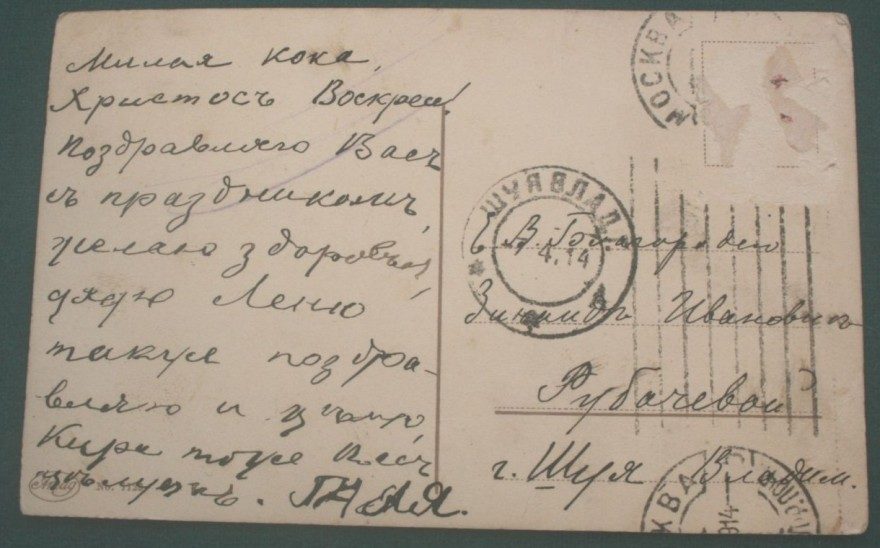 Милая кока,
Христосъ Воскресе!
Поздравляю Васъ
съ праздникомъ,
желаю здоровья,
дядю Леню
также поздра-
вляю и цѣлую
Кира тоже Васъ
цѣлуетъ. ГАЛЯ.
No.
МОСКВА
ШУЯ ВЛАД.
4.14
Е В Благородію
Зинаидѣ Ивановнѣ
Рубачевой
г. Шуя, Владим.
МОСКВА
914